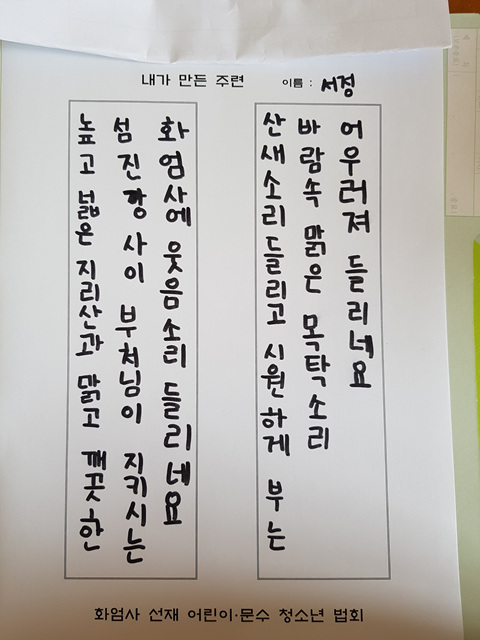 내가 만든 주련
이름 : 서정
높고 넓은 지리산과 맑고 깨끗한
섬진강 사이 부처님이 지키시는
화엄사에 웃음소리 들리네요
산새소리 들리고 시원하게 부는
바람속 맑은 목탁소리
어우러져 들리네요
화엄사 선재 어린이·문수 청소년 법회